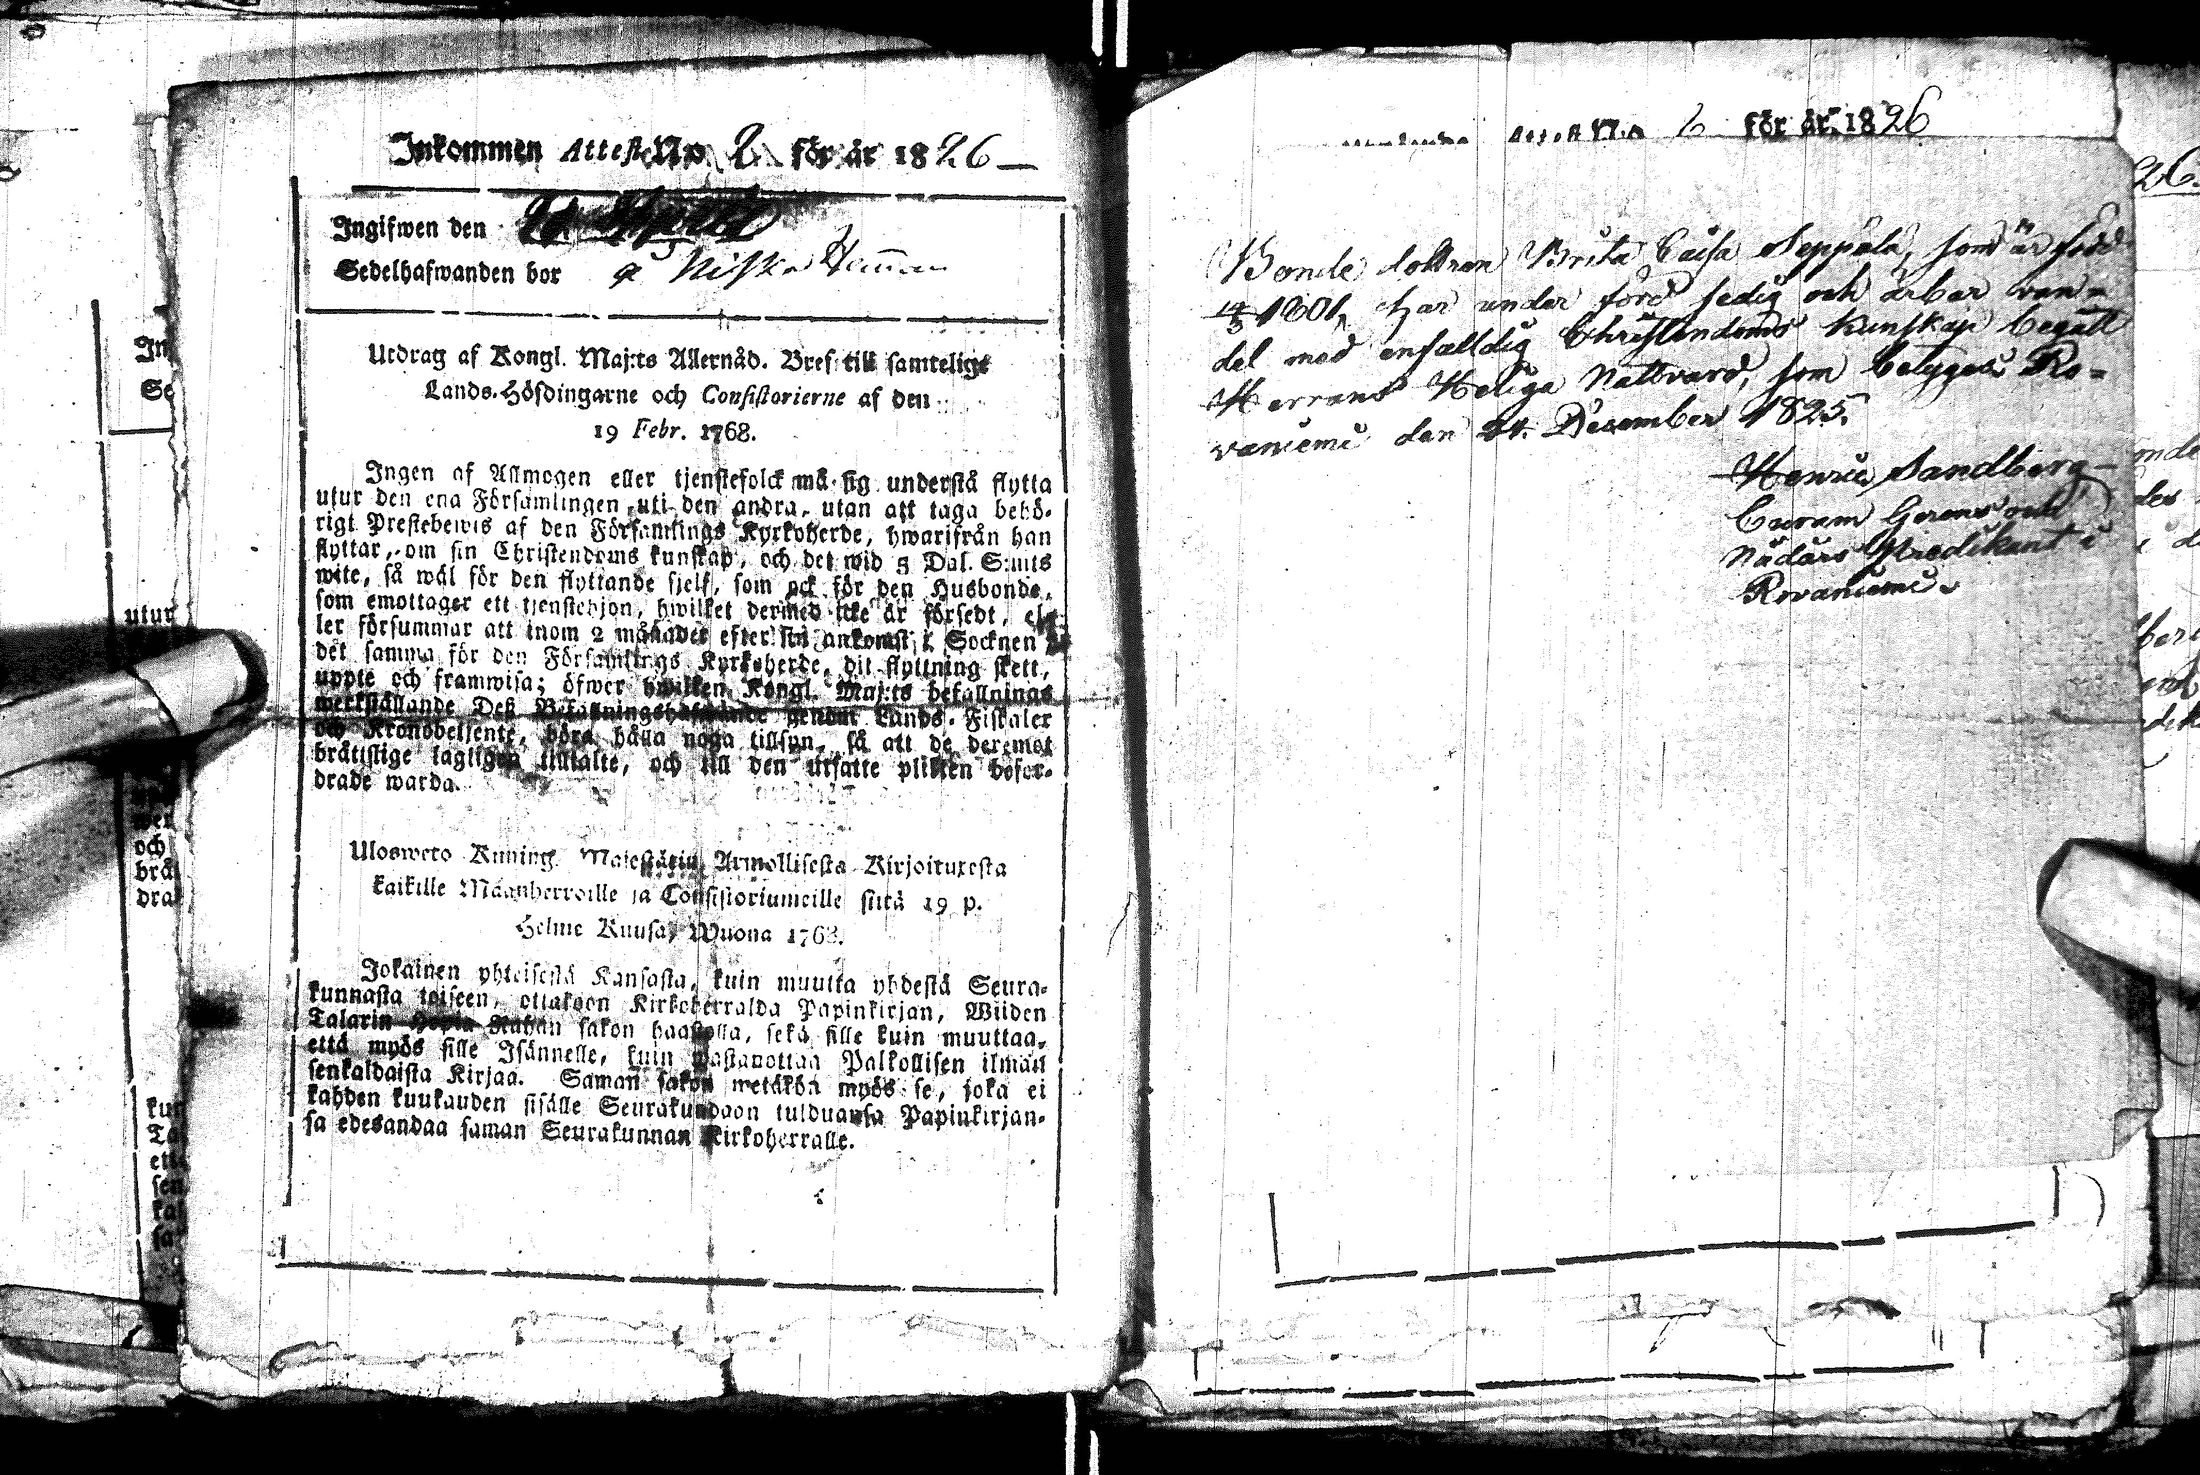 Inkommen Attest No 2 för år 1826
Ingifwen den
Sedelhafwanden bor å Niska Hemman
Utdrag af Kongl. Maj:ts Allernåd. Bref till samtelige
Lands-Höfdingarne och Consistorierne af den
19 Febr. 1768.
Ingen af Allmogen eller tjenstefolck må sig understå flytta
utur den ena Församlingen uti den andra, utan att taga behö-
rigt Prestebewis af den Församlings Kyrkoherde, hwarifrån han
flyttar, om sin Christendoms kunskap, och det wid 5 Dal. S:mts
wite, så wäl för den flyttande sjelf, som ock för den Husbonde,
som emottager ett tjenstehjon, hwilket dermed icke är försedt, el-
ler försummar att inom 2 månader efter sin ankomst i Socknen
det samma för den Församlings Kyrkoherde, dit flyttning skett,
uppte och framwisa; öfwer hwilken Kongl. Maj:ts befallnings
werkställande Deß Befallningshafwande genom Lands-Fiskaler
och Kronobetjente, böra hålla noga tillsyn, så att de deremot
bråttslige lagligen tilltalte, och till den utsatte plikten befor-
drade warda.
Ulosweto Kuning. Majestätin Armollisesta Kirjoituxesta
kaikille Maanherroille ja Consistoriumeille siitä 19 p.
Helme Kuusa, Wuona 1768.
Jokainen yhteisestä Kansasta, kuin muutta yhdestä Seura-
kunnasta toiseen, ottakoon Kirkoherralda Papinkirjan, Wiiden
Talarin Hopia Rahan sakon haastolla, sekä sille kuin muuttaa,
että myös sille Isännelle, kuin wastanottaa Palkollisen ilman
senkaldaista Kirjaa. Saman sakon wetäkön myös se, joka ei
kahden kuukauden sisälle Seurakundaon tulduansa Papinkirjan-
sa edesandaa saman Seurakunnan Kirkoherralle.
för år 1826
Bonde dottren Brita Caisa Seppälä, som är född
1801, har under förd sedig och ärbar van-
del med enfalldig Christendoms kunskap begått
Herrans Heliga Nattvard, som betygas. Ro-
vaniemi den 24. December 1825.
Henric Sandberg
Curam Gerens och
Nådårs Predikant i
Rovaniemi.